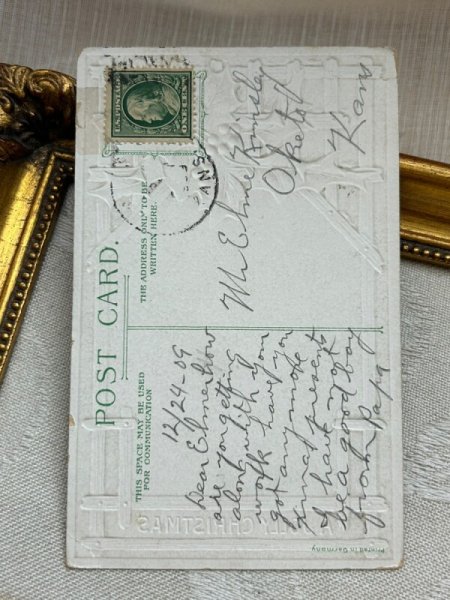 POST CARD.
THIS SPACE MAY BE USED
FOR COMMUNICATION
THE ADDRESS ONLY TO BE
WRITTEN HERE.
U.S. POSTAGE
ONE CENT
KANS
12/24-09
Dear Elmer how
are you getting
along with your
work have you
got any more
xmas present
I have not
be a good boy
from Papa
Mr Elmer
Oketo
Kans
Printed in Germany
CHRISTMAS